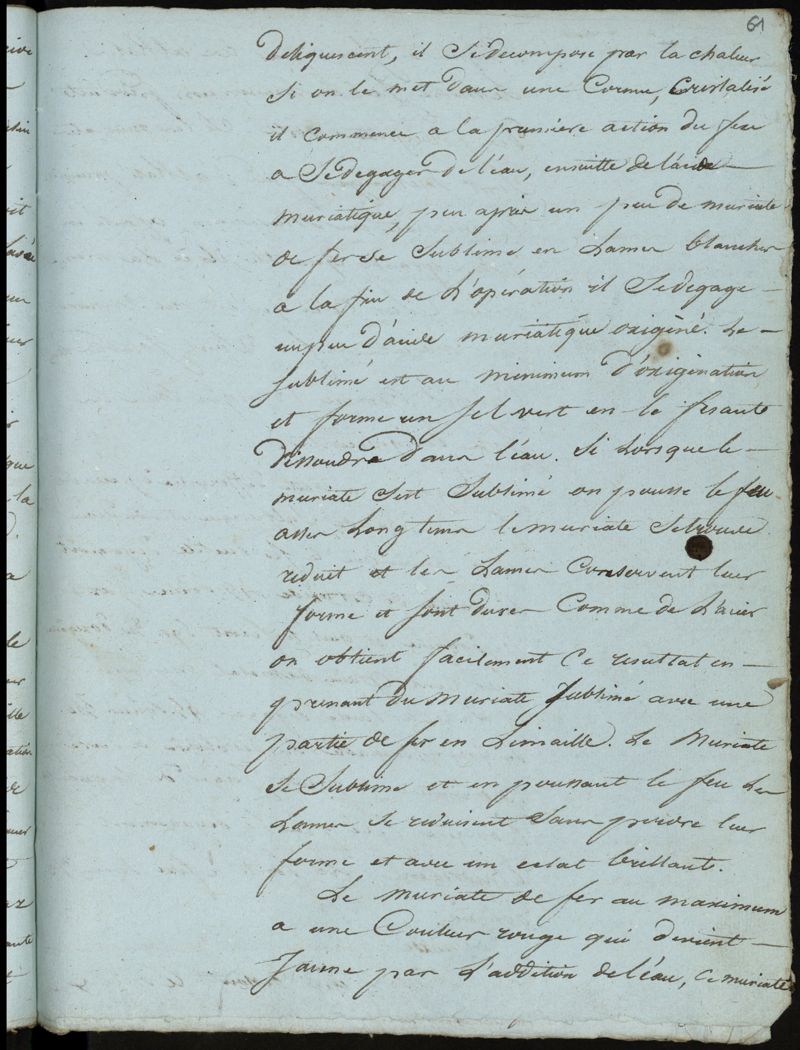 61
deliquescent, il se decompose par la chaleur
si on le met dans une Cornue, Cristalisé
il commence a la premiere action du feu
a se degager de l'éau, ensuitte de l'acide
muriatique, peu après un peu de muriate
de fer se sublime en Lames blanches
a la fin de L'opération il se degage
un peu d'acide muriatique oxigéné. Le
sublimé est au minimum d'oxigenation
et forme un sel vert en le fesant
dissoudre dans l'éau. Si Lorsque le
muriate s'est sublimé on pousse le feu
asses Long tems le muriate se trouve
reduit et les Lames Conservent leur
forme et sont dures Comme de L'acier
on obtient facilement Ce resultat en
prenant du Muriate sublimé avec une
partie de fer en Limaille. Le Muriate
se sublime et en poussant le feu Les
Lames se reduisent sans perdre leur
forme et avec un eclat brillant.
Le muriate de fer au maximum
a une Couleur rouge qui devient
Jaune par L'addition de l'éau, Ce muriate